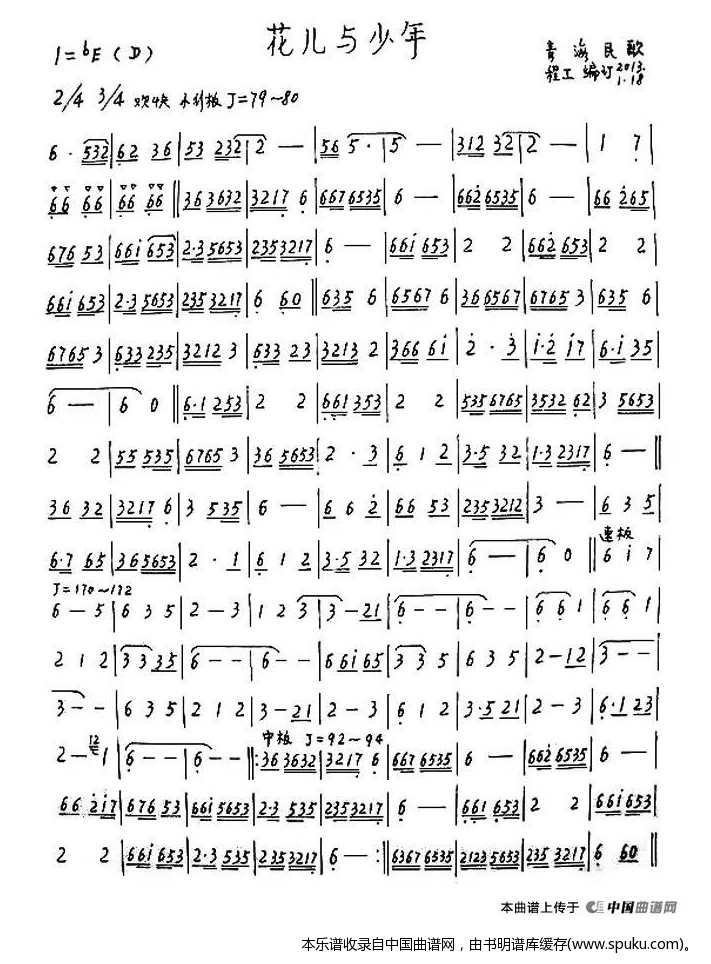 花儿与少年
1=bE (D)
青海民歌
程工 编订 2013.1.18
2/4 3/4 欢快 小行板 J=79~80
6·532|62 36|53 232|2 —|56 5·|5 —|312 32|2 —|1 7|
66 66|66 66‖363632|3217 6|6676535|6 —|6626535|6 —|66 265|
676 53|661 653|2·35653|2353217|6 —|661 653|2 2|662 653|2 2|
661 653|2·35653|2353217|6 60‖635 6|6567 6|366567|6765 3|635 6|
6765 3|633 235|3212 3|633 23|3213 2|366 61|2·3|1·2 17|6·1 35|
6 —|6 0‖6·1 253|2 2|661 353|2 2|535 6765|3532 62|3 5653|
2 2|55 535|6765 3|36 5653|2·3|6 1 2|3·5 32|1·3 2317|6 —‖
36 32|3217 6|3 535|6 —|6 6 2|66 53|2353212|3 —|6 3 5|
6·7 65|365653|2·1|6 1 2|3·5 32|1·3 2317|6 —|6 0‖6 1 7|
速板
J=170~172
6 — 5|6 3 5|2 — 3|1 2 3|3 — 21|6 - -|6 - -|6 6 1|6 6 1|
2 1 2|3 3 35|6 - -|6 - -|66165|3 3 5|6 3 5|2 - 12|3 - -|
3 - -|6 3 5|2 1 2|3 - 21|2 - 3|6 1 2|3·5 21|2 - 3|6·1 23|
中板 J=92~94
2 — 12 1|6 - -|6 - -‖:36 3632|3217 6|667 6535|6 —|662 6535|6 —|
66 217|676 53|661 5653|2·3 535|2353217|6 —|661 653|2 2|661653|
2 2|661 653|2·3 535|2353217|6 — :‖6367 6535|2123 5653|235 3217|6 60‖
本曲谱上传于 中国曲谱网
本乐谱收录自中国曲谱网，由书明谱库缓存(www.spuku.com)。